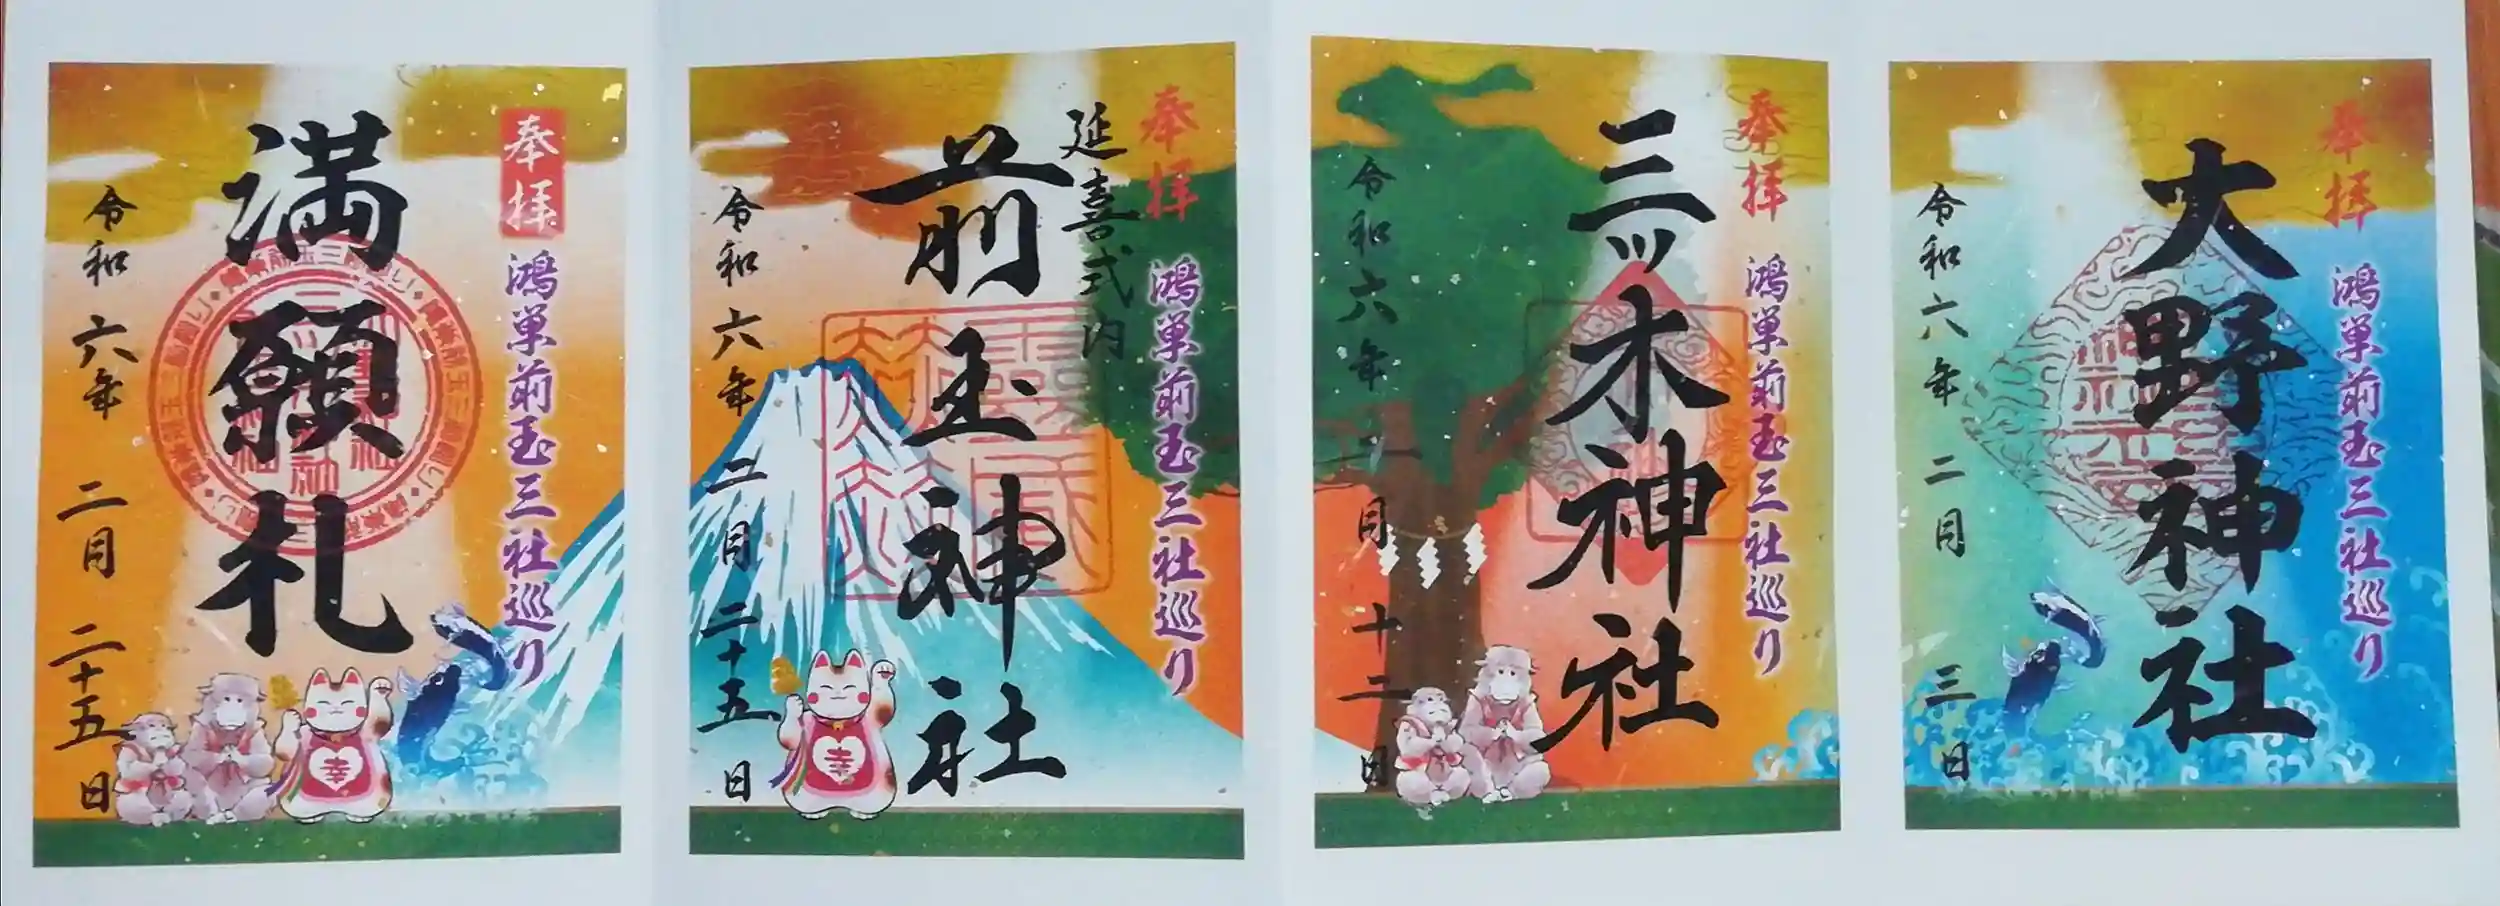 奉拝
鴻巣前玉三社巡り
大野神社
令和六年二月三日
奉拝
鴻巣前玉三社巡り
三ツ木神社
令和六年二月十二日
奉拝
鴻巣前玉三社巡り
延喜式内
前玉神社
令和六年二月二十五日
幸
奉拝
鴻巣前玉三社巡り
満願札
令和六年二月二十五日
幸